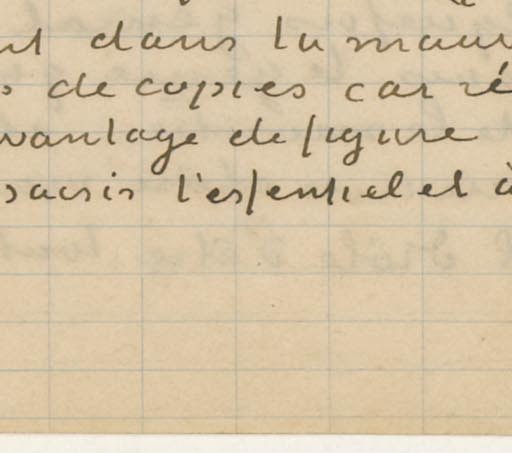 nt dans ta main
s de copies car ré
vantage de figure
saisis l'essentiel et à